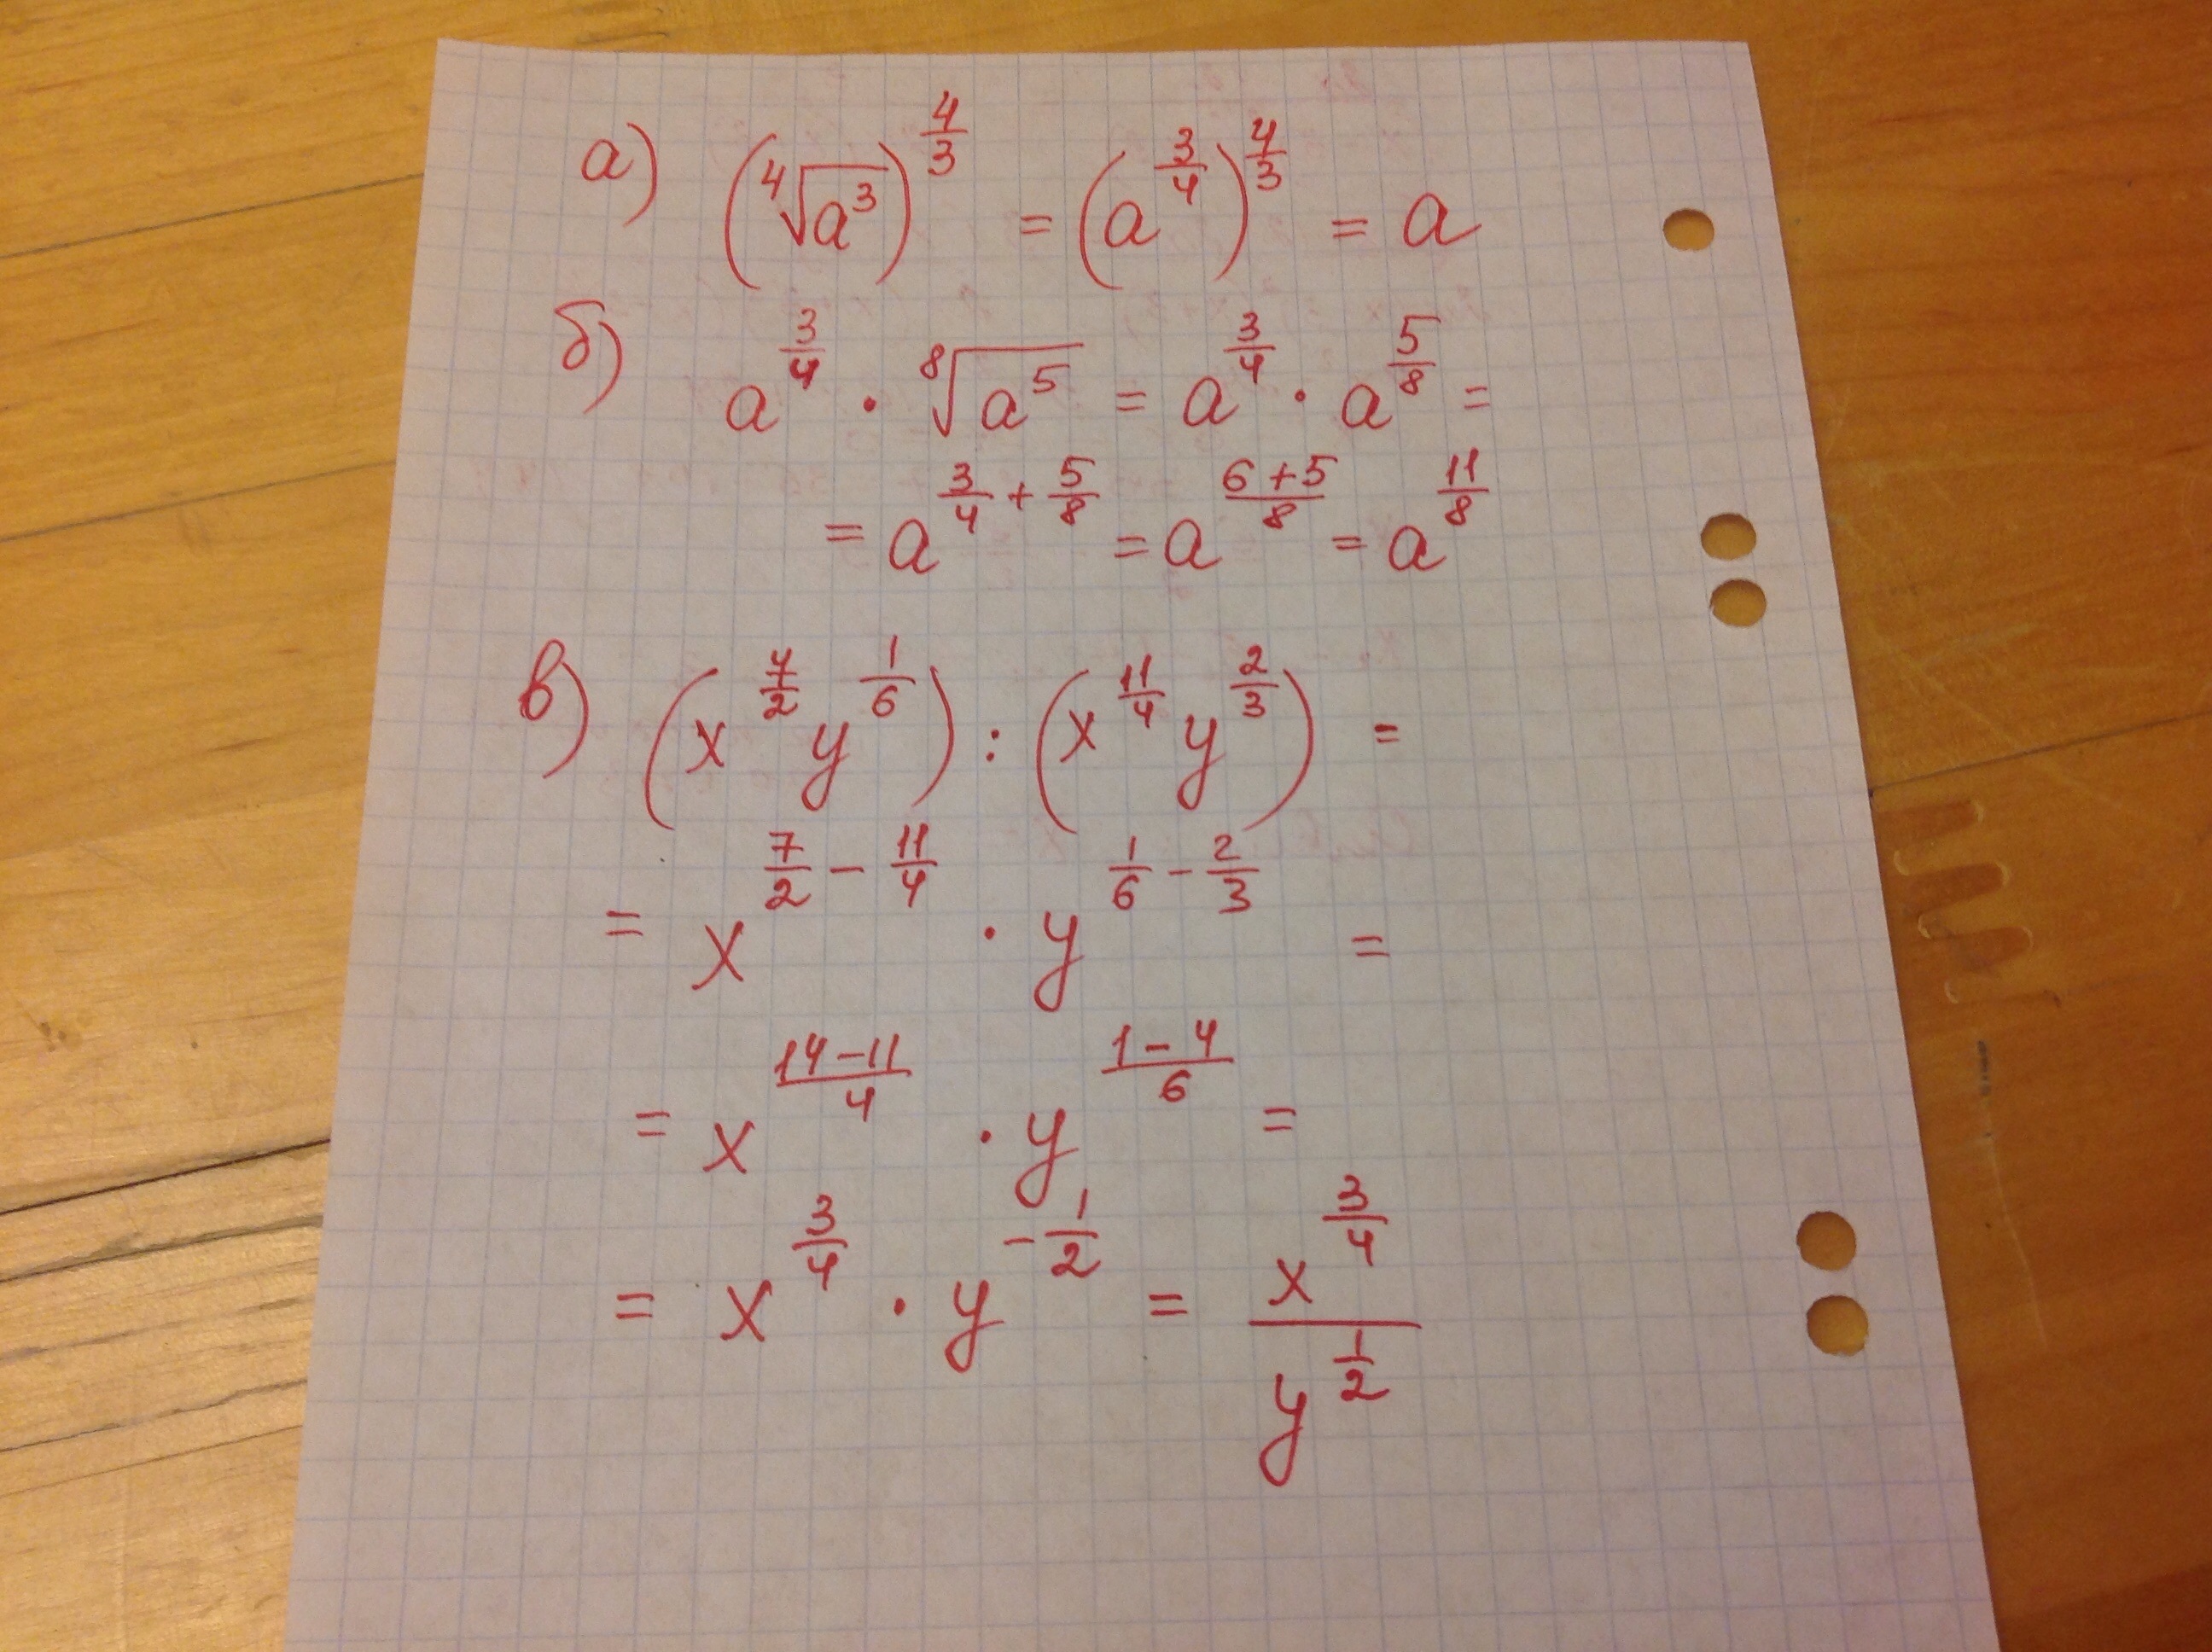 а) (⁴√a³)^(4/3) = (a^(3/4))^(4/3) = a
б) a^(3/4) · ⁸√a⁵ = a^(3/4) · a^(5/8) =
= a^(3/4 + 5/8) = a^((6+5)/8) = a^(11/8)
в) (x^(7/2) y^(1/6)) : (x^(11/4) y^(2/3)) =
= x^(7/2 − 11/4) · y^(1/6 − 2/3) =
= x^((14−11)/4) · y^((1−4)/6) =
= x^(3/4) · y^(−1/2) = x^(3/4) / y^(1/2)